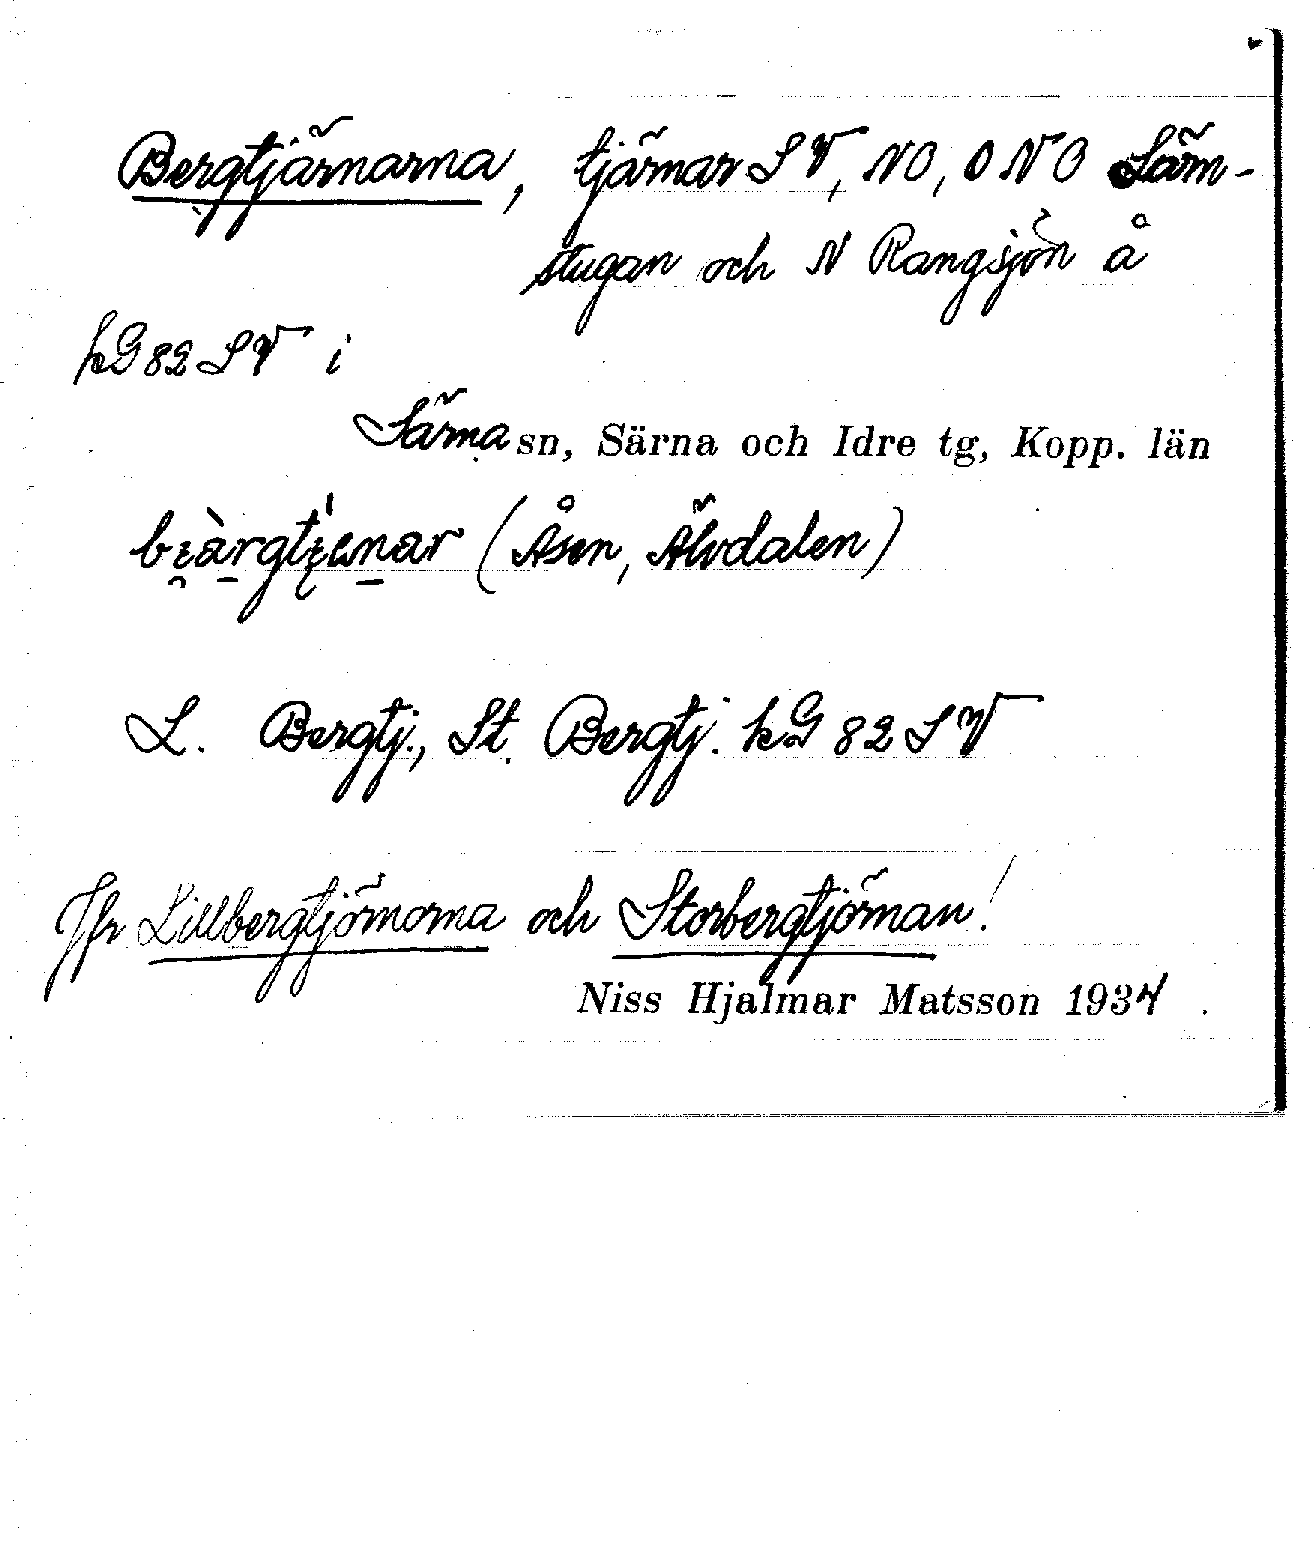 Bergtjärnarna, tjärnar SV, NO, ONO Särn-
stugan och N Rangsjön å
kG 82 SV i
Särna sn, Särna och Idre tg, Kopp. län
(Åsen, Älvdalen)
L. Bergtj., St. Bergtj. kG 82 SV
Jfr Lillbergtjörnorna och Storbergtjörnan!
Niss Hjalmar Matsson 1934.